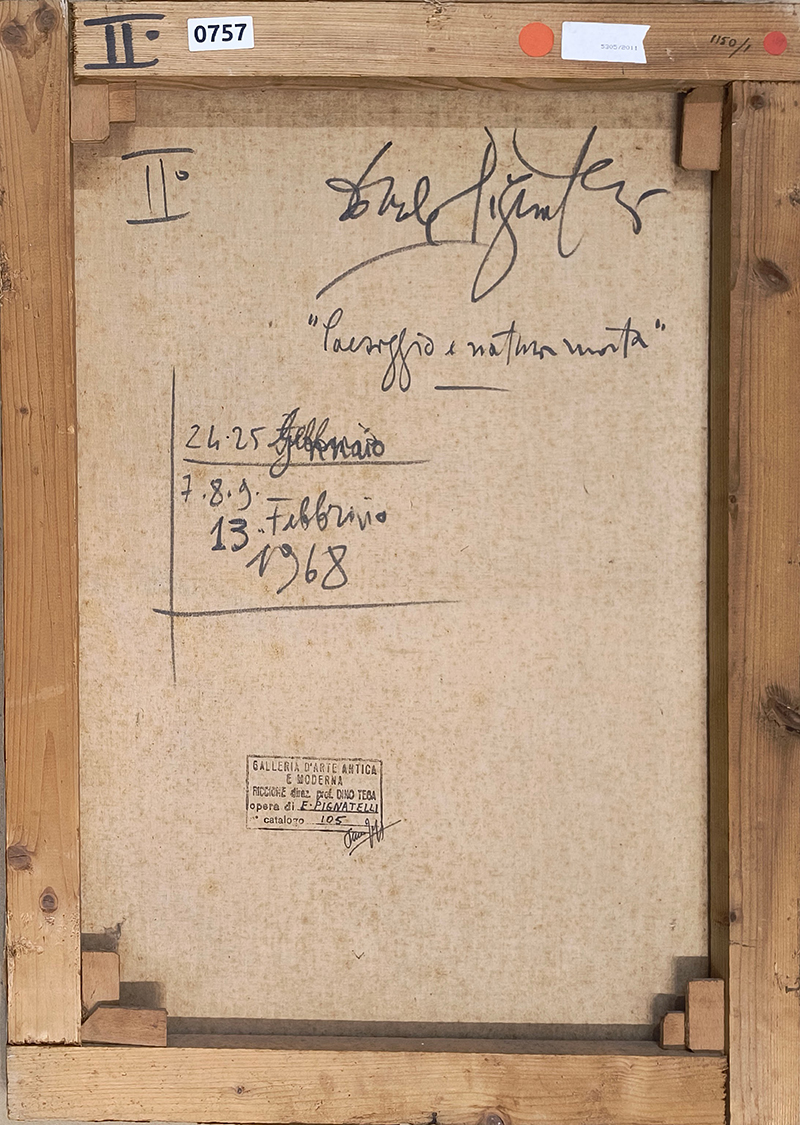 II°
0757
5305/2011
1150/1
II°
Ercole Pignatelli
"Paesaggio e natura morta"
24.25 Gennaio
7.8.9.
13. Febbraio
1968
GALLERIA D'ARTE ANTICA
E MODERNA
RICCIONE direz. prof. DINO TEGA
opera di E. PIGNATELLI
catalogo 105